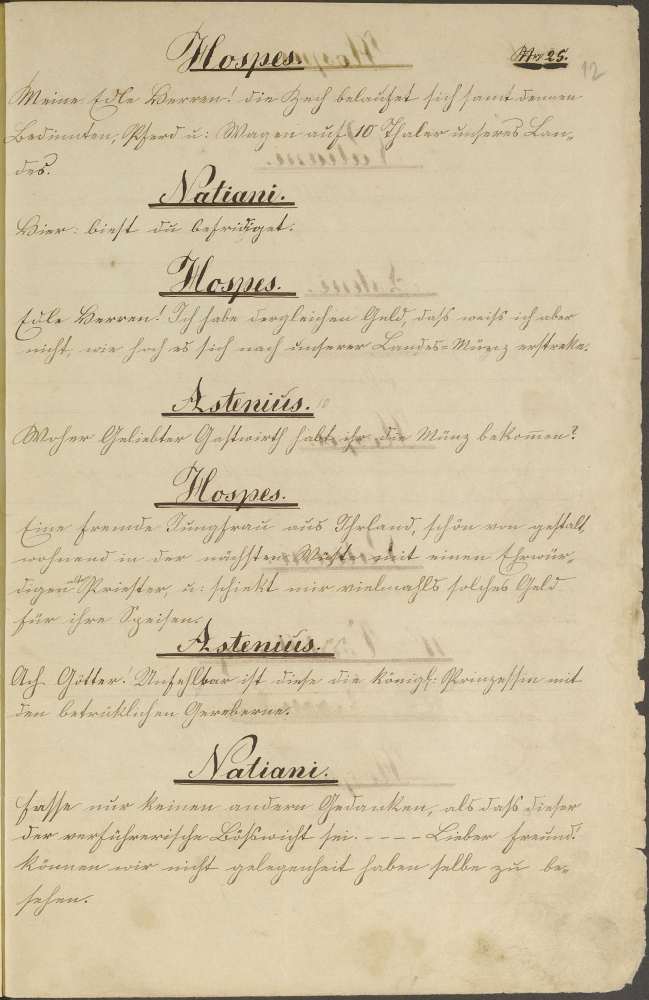 Hospes. Nro 25. 12
Meine Edle Herren! die Zech belaufet sich samt dennen
Bedinnten, Pferd u: Wagen auf 10 Thaler unseres Lan-
des.
Natiani.
Hier: biest du befridiget.
Hospes.
Edle Herren! Ich habe dergleichen Geld, daß weiß ich aber
nicht, wie hoch es sich nach unserer Landes-Münz erstreke.
Astenius.
Woher Geliebter Gastwirth habt ihr die Münz bekomen?
Hospes.
Eine fremde Jungfrau aus Ihrland, schön von gestalt,
wohnend in der nächsten mit einen Ehrwür-
digen alt Priester, u: schiekt mir vielmahls solches Geld
für ihre Speisen.
Astenius.
Ach Götter! Unfehlbar ist diese die Königl: Prinzessin mit
den betrüklichen Gereberne.
Natiani.
Fasse nur keinen andern Gedanken, als daß dieser
der verführerische Bößwicht sei. – – – – Lieber Freund!
können wir nicht gelegenheit haben selbe zu be-
sehen.